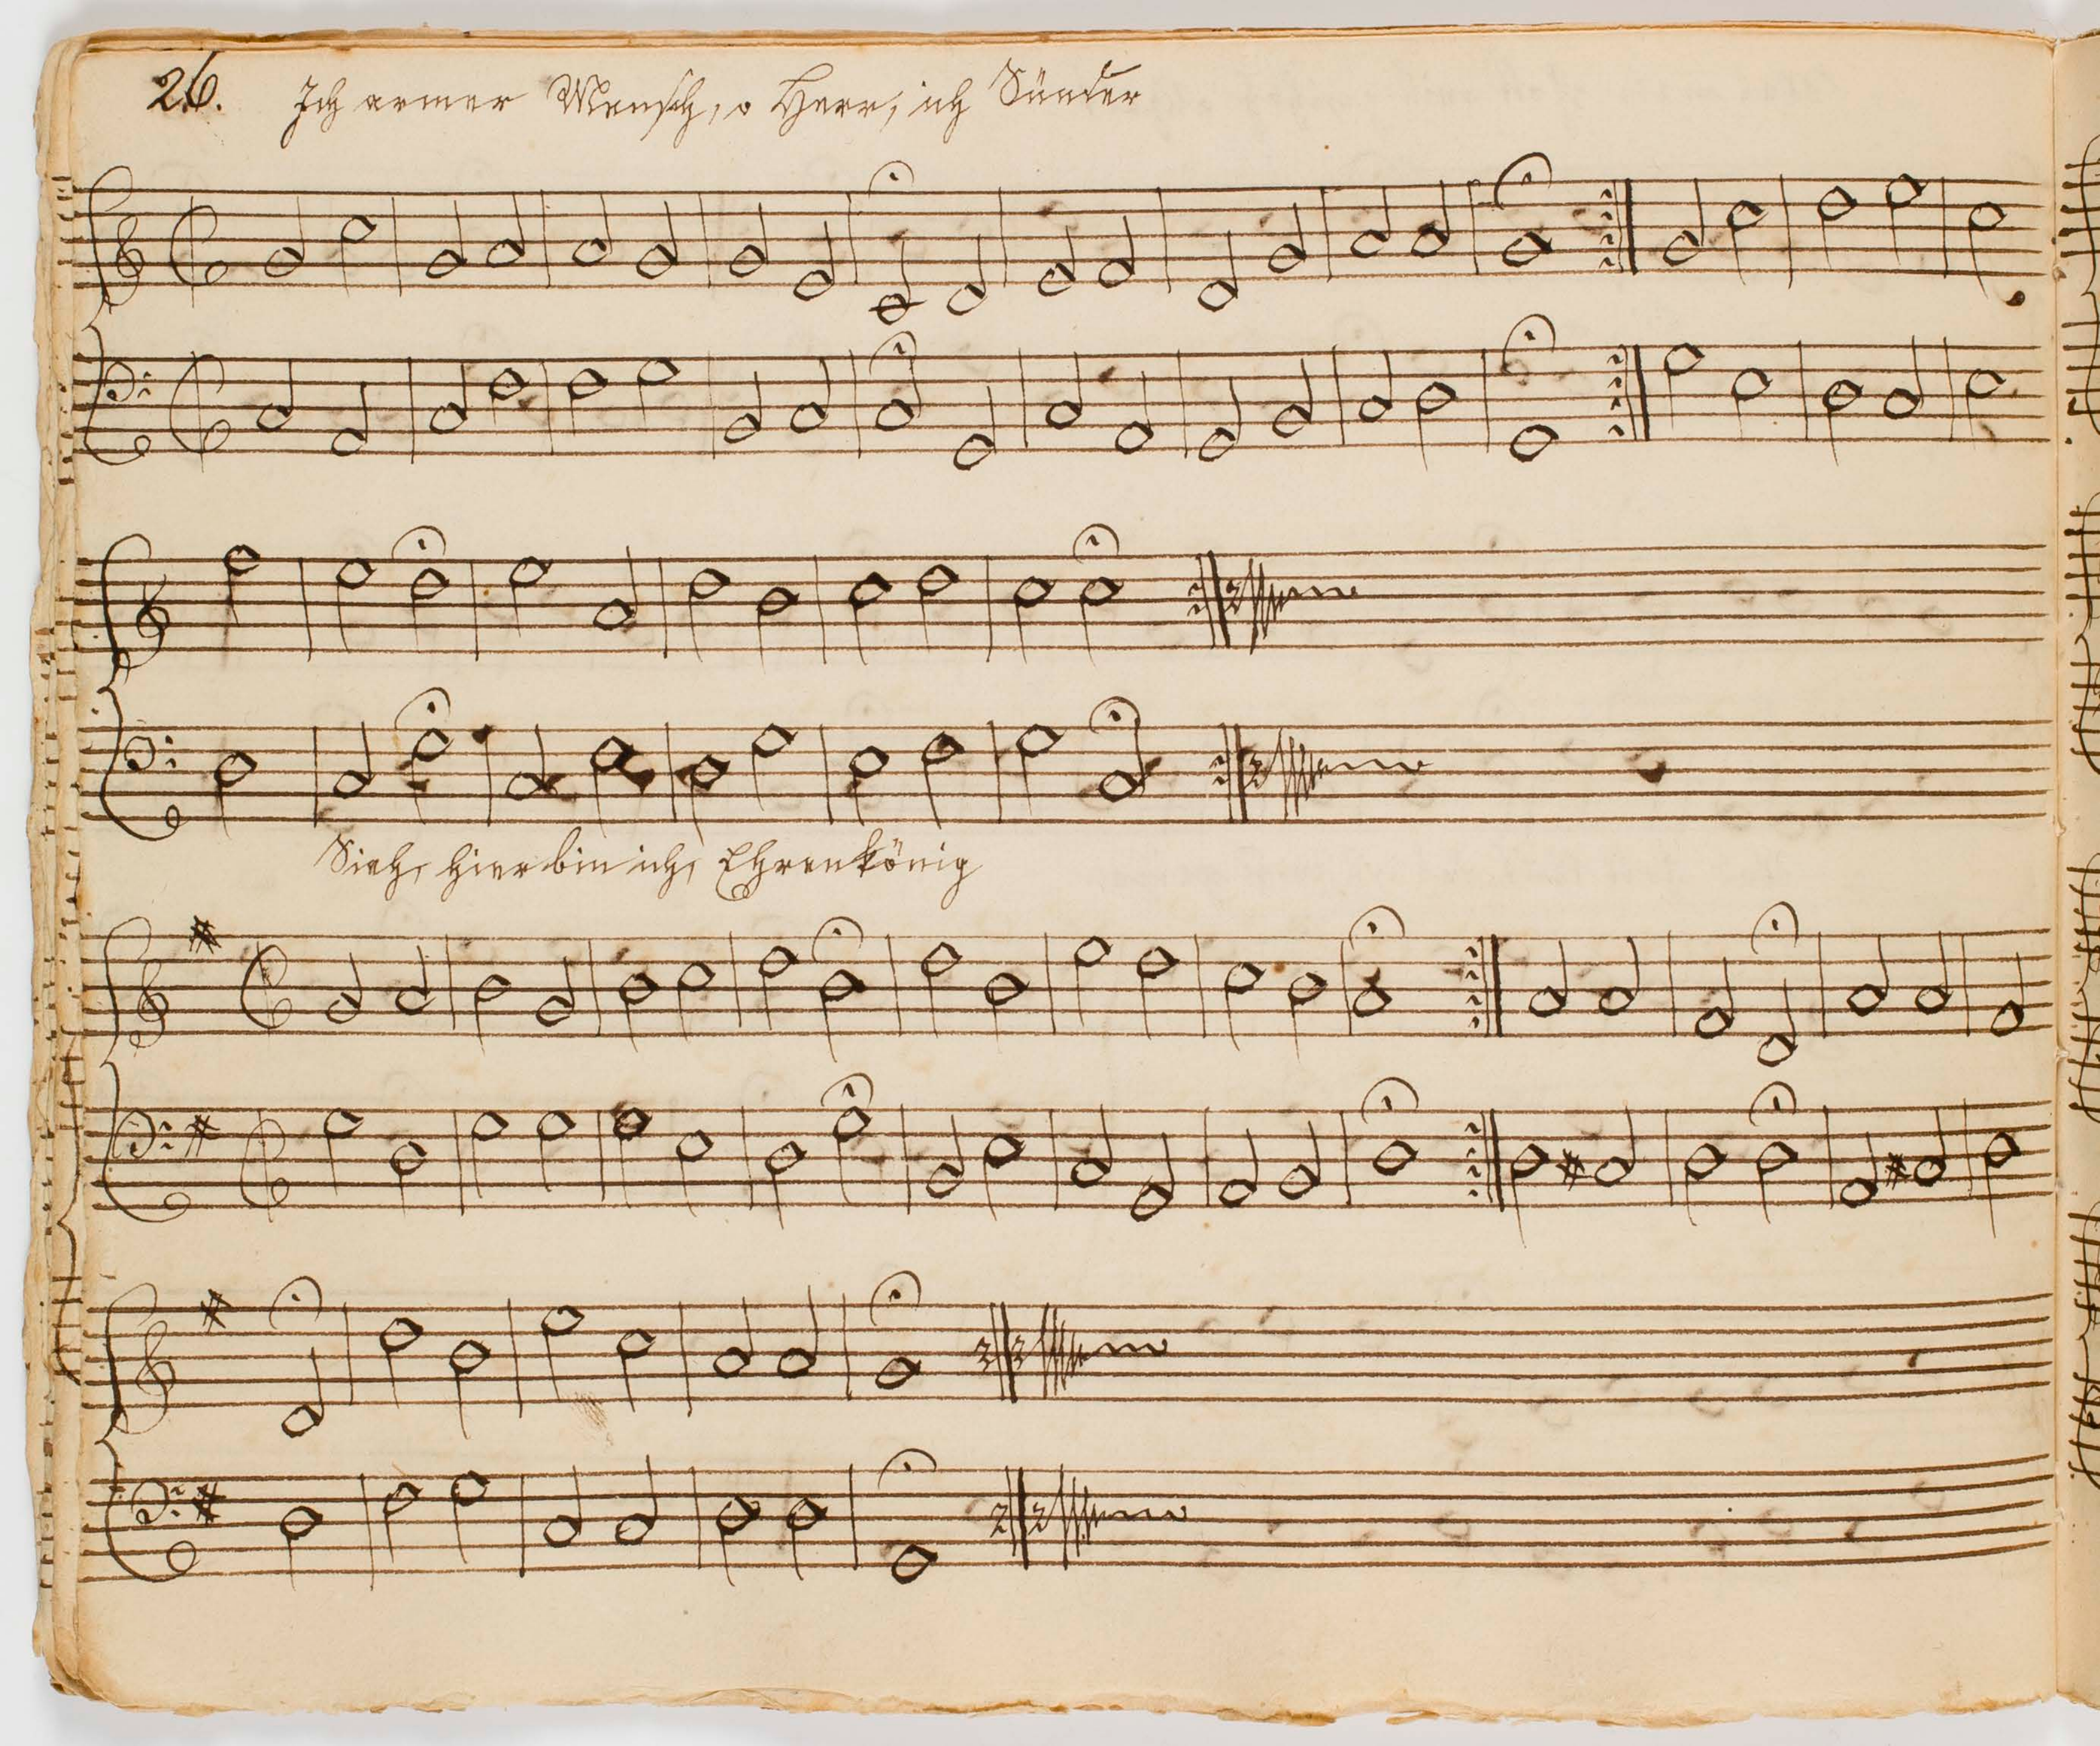 26. Ich armer Mensch, o Herr, ich Sünder
Sieh, hier bin ich, Ehrenkönig